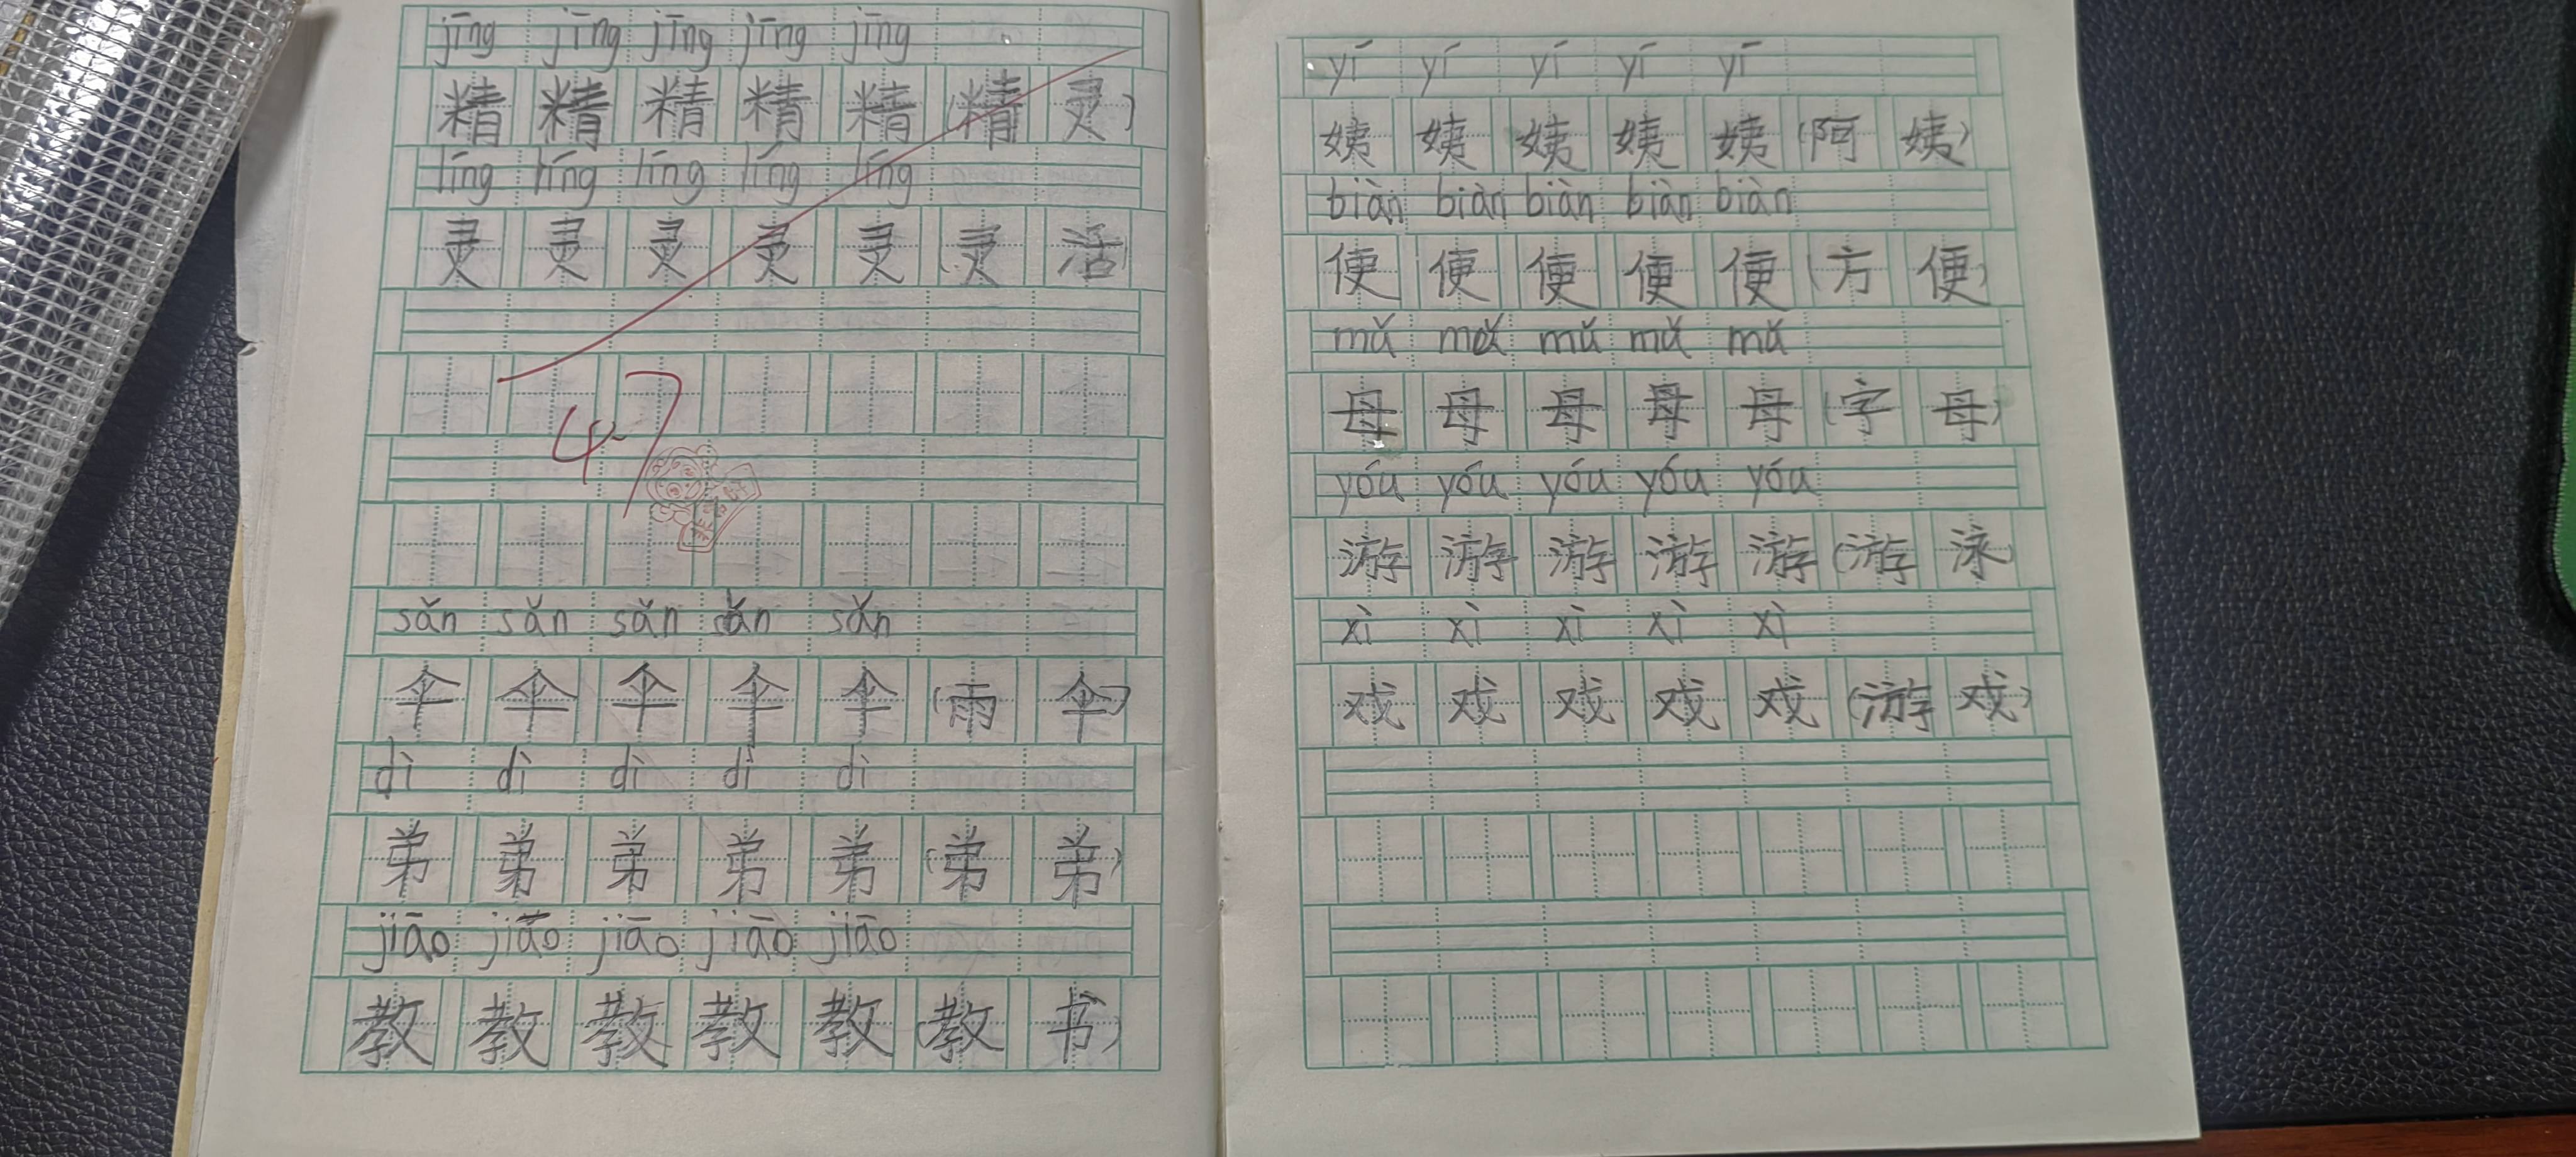 jīng jīng jīng jīng jīng
精 精 精 精 精 (精 灵)
líng líng líng líng líng
灵 灵 灵 灵 灵 (灵 活)
4.7
sǎn sǎn sǎn sǎn sǎn
伞 伞 伞 伞 伞 (雨 伞)
dì dì dì dì dì
弟 弟 弟 弟 弟 (弟 弟)
jiāo jiāo jiāo jiāo jiāo
教 教 教 教 教 (教 书)
yí yí yí yí yí
姨 姨 姨 姨 姨 (阿 姨)
biàn biàn biàn biàn biàn
便 便 便 便 便 (方 便)
mǔ mǔ mǔ mǔ mǔ
母 母 母 母 母 (字 母)
yóu yóu yóu yóu yóu
游 游 游 游 游 (游 泳)
xì xì xì xì xì
戏 戏 戏 戏 戏 (游 戏)